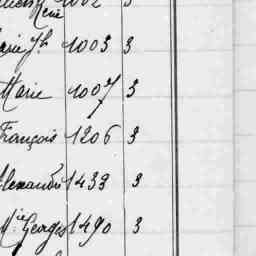 René 1002 3
Marie Jh 1003 3
Marie 1007 3
François 1206 3
Alexandre 1433 3
Mie Georges 1490 3